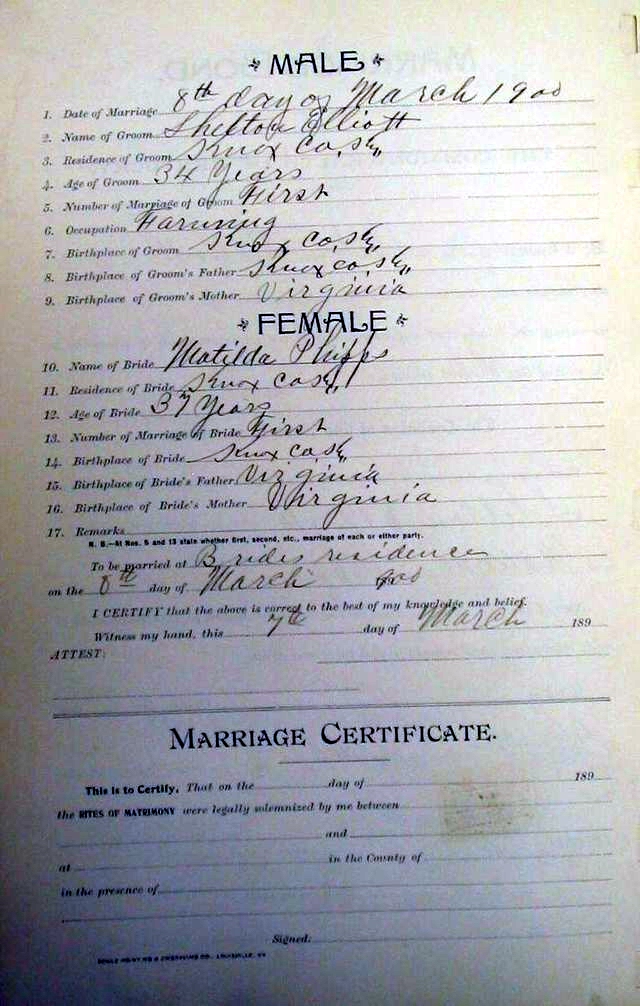 MALE
1. Date of Marriage 8th day of March 1900
2. Name of Groom Shelton Elliott
3. Residence of Groom Knox Co, Ky
4. Age of Groom 34 Years
5. Number of Marriage of Groom First
6. Occupation Farming
7. Birthplace of Groom Knox Co, Ky
8. Birthplace of Groom's Father Knox Co, Ky
9. Birthplace of Groom's Mother Virginia
FEMALE
10. Name of Bride Matilda Phipps
11. Residence of Bride Knox Co Ky
12. Age of Bride 37 Years
13. Number of Marriage of Bride First
14. Birthplace of Bride Knox Co Ky
15. Birthplace of Bride's Father Virginia
16. Birthplace of Bride's Mother Virginia
17. Remarks
N. B.—At Nos. 5 and 13 state whether first, second, etc., marriage of each or either party.
To be married at Brides residence
on the 8th day of March 900
I CERTIFY that the above is correct to the best of my knowledge and belief.
Witness my hand, this 7th day of March 189
ATTEST:
MARRIAGE CERTIFICATE.
This is to Certify, That on the day of 189
the RITES OF MATRIMONY were legally solemnized by me between
and
at in the County of
in the presence of
Signed:
CO., LOUISVILLE, KY